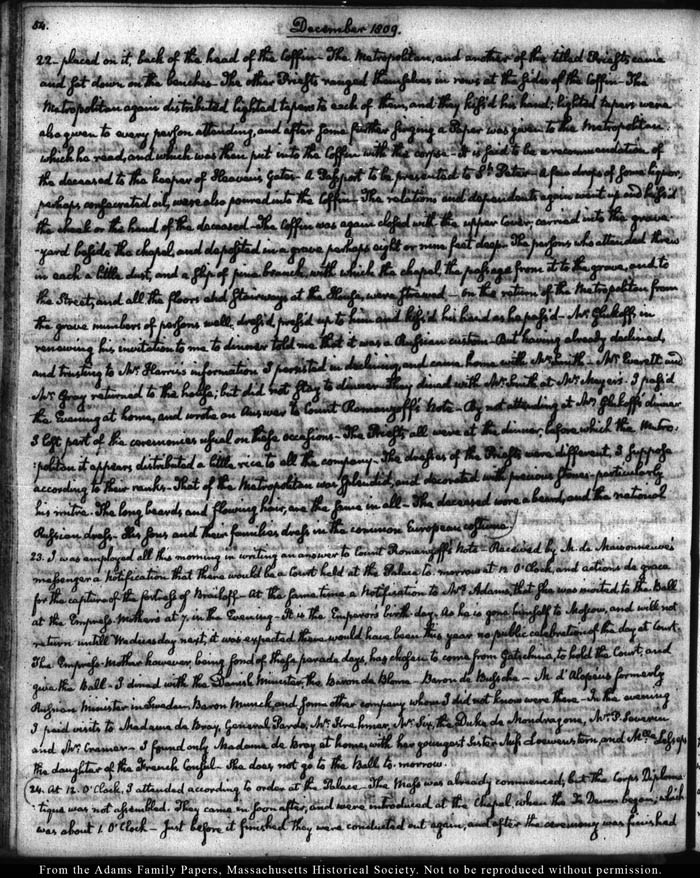 54.
December 1809.
22. placed on it, back of the head of the Coffin—The Metropolitan, and another of the titled Priests came
and sat down on the benches—The other Priests ranged themselves in rows at the sides of the Coffin—The
Metropolitan again distributed lighted tapers to each of them, and they kiss'd his hand; lighted tapers were
also given to every person attending, and after some further singing a Paper was given to the Metropolitan
which he read, and which was then put into the Coffin with the corpse—It is said to be a recommendation of
the deceased to the keeper of Heaven's Gates—A Passport to be presented to St. Peter—A few drops of some liquor,
perhaps consecrated oil, were also poured into the Coffin—The relations and dependents again went up and kiss'd
the cheek or the hand of the deceased—The Coffin was again closed with the upper cover, carried into the grave-
yard beside the chapel, and deposited in a grave perhaps eight or nine feet deep. The persons who attended threw
in each a little dust, and a slip of pine branch, with which the chapel, the passage from it to the grave, and to
the Street, and all the floors and stairways at the House, were strewed—On the return of the Metropolitan from
the grave numbers of persons well dress'd press'd up to him and kiss'd his hand as he pass'd—Mr. Glukoff, in
renewing his invitation to me to dinner told me that it was a Russian custom—But having already declined,
and trusting to Mr. Harris's information I persisted in declining, and came home with Mr. Smith—Mr. Everett and
Mr. Gray returned to the house; but did not stay to dinner—they dined with Mr. Smith at Mr. Meyer's. I pass'd
the Evening at home, and wrote an Answer to Count Romanzoff's Note—By not attending at Mr. Glukoff's dinner
I lost part of the ceremonies usual on these occasions—The Priests all were at the dinner, before which the Metro-
politan it appears distributed a little rice to all the company—The dresses of the Priests were different, I suppose
according to their ranks—That of the Metropolitan was splendid, and decorated with precious stones—particularly
his mitre. The long beards and flowing hair, are the same in all—The deceased wore a beard, and the national
Russian dress—His sons and their families dress in the common European costume.
23. I was employed all this morning in writing an answer to Count Romanzoff's Note—Received by M. de Maisonneuve's
messenger a Notification that there would be a Court held at the Palace to-morrow at 12 O'Clock, and actions de grace
for the capture of the fortress of Brailoff—At the same time a Notification to Mrs. Adams, that she was invited to the Ball
at the Empress Mother's at 7. in the Evening—It is the Emperor's birth-day. As he is gone himself to Moscow, and will not
return untill Wednesday next, it was expected there would have been this year no public celebration of the day at Court.
The Empress-Mother however, being fond of these parade days, has chosen to come from Gatschina, to hold the Court, and
give the Ball—I dined with the Danish Minister, the Baron de Blome—Baron de Bussche—M. d'Alopeus formerly
Russian Minister in Sweden. Baron Munck, and some other company whom I did not know were there—In the evening
I paid visits to Madame de Bray, General Pardo, Mr. Krehmer, Mr. Six, the Duke de Mondragone, Mr. P. Severin
and Mr. Cramer—I found only Madame de Bray at home, with her youngest Sister Miss Loewenstern, and Mlle. Lesseps
the daughter of the French Consul—She does not go to the Ball to-morrow.
24. At 12. O'Clock, I attended according to order at the Palace—The Mass was already commenced, but the Corps Diploma-
tique was not assembled. They came in soon after, and were introduced at the Chapel, when the Te Deum began, which
was about 1. O'Clock—Just before it finished they were conducted out again, and after the ceremony was finished
From the Adams Family Papers, Massachusetts Historical Society. Not to be reproduced without permission.